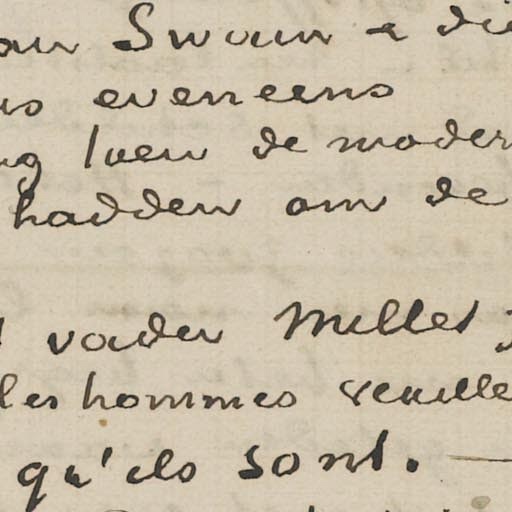 Swain &
eveneens
toen de moder
hadden om de
vader Millet
les hommes veuille
qu'ils sont. —